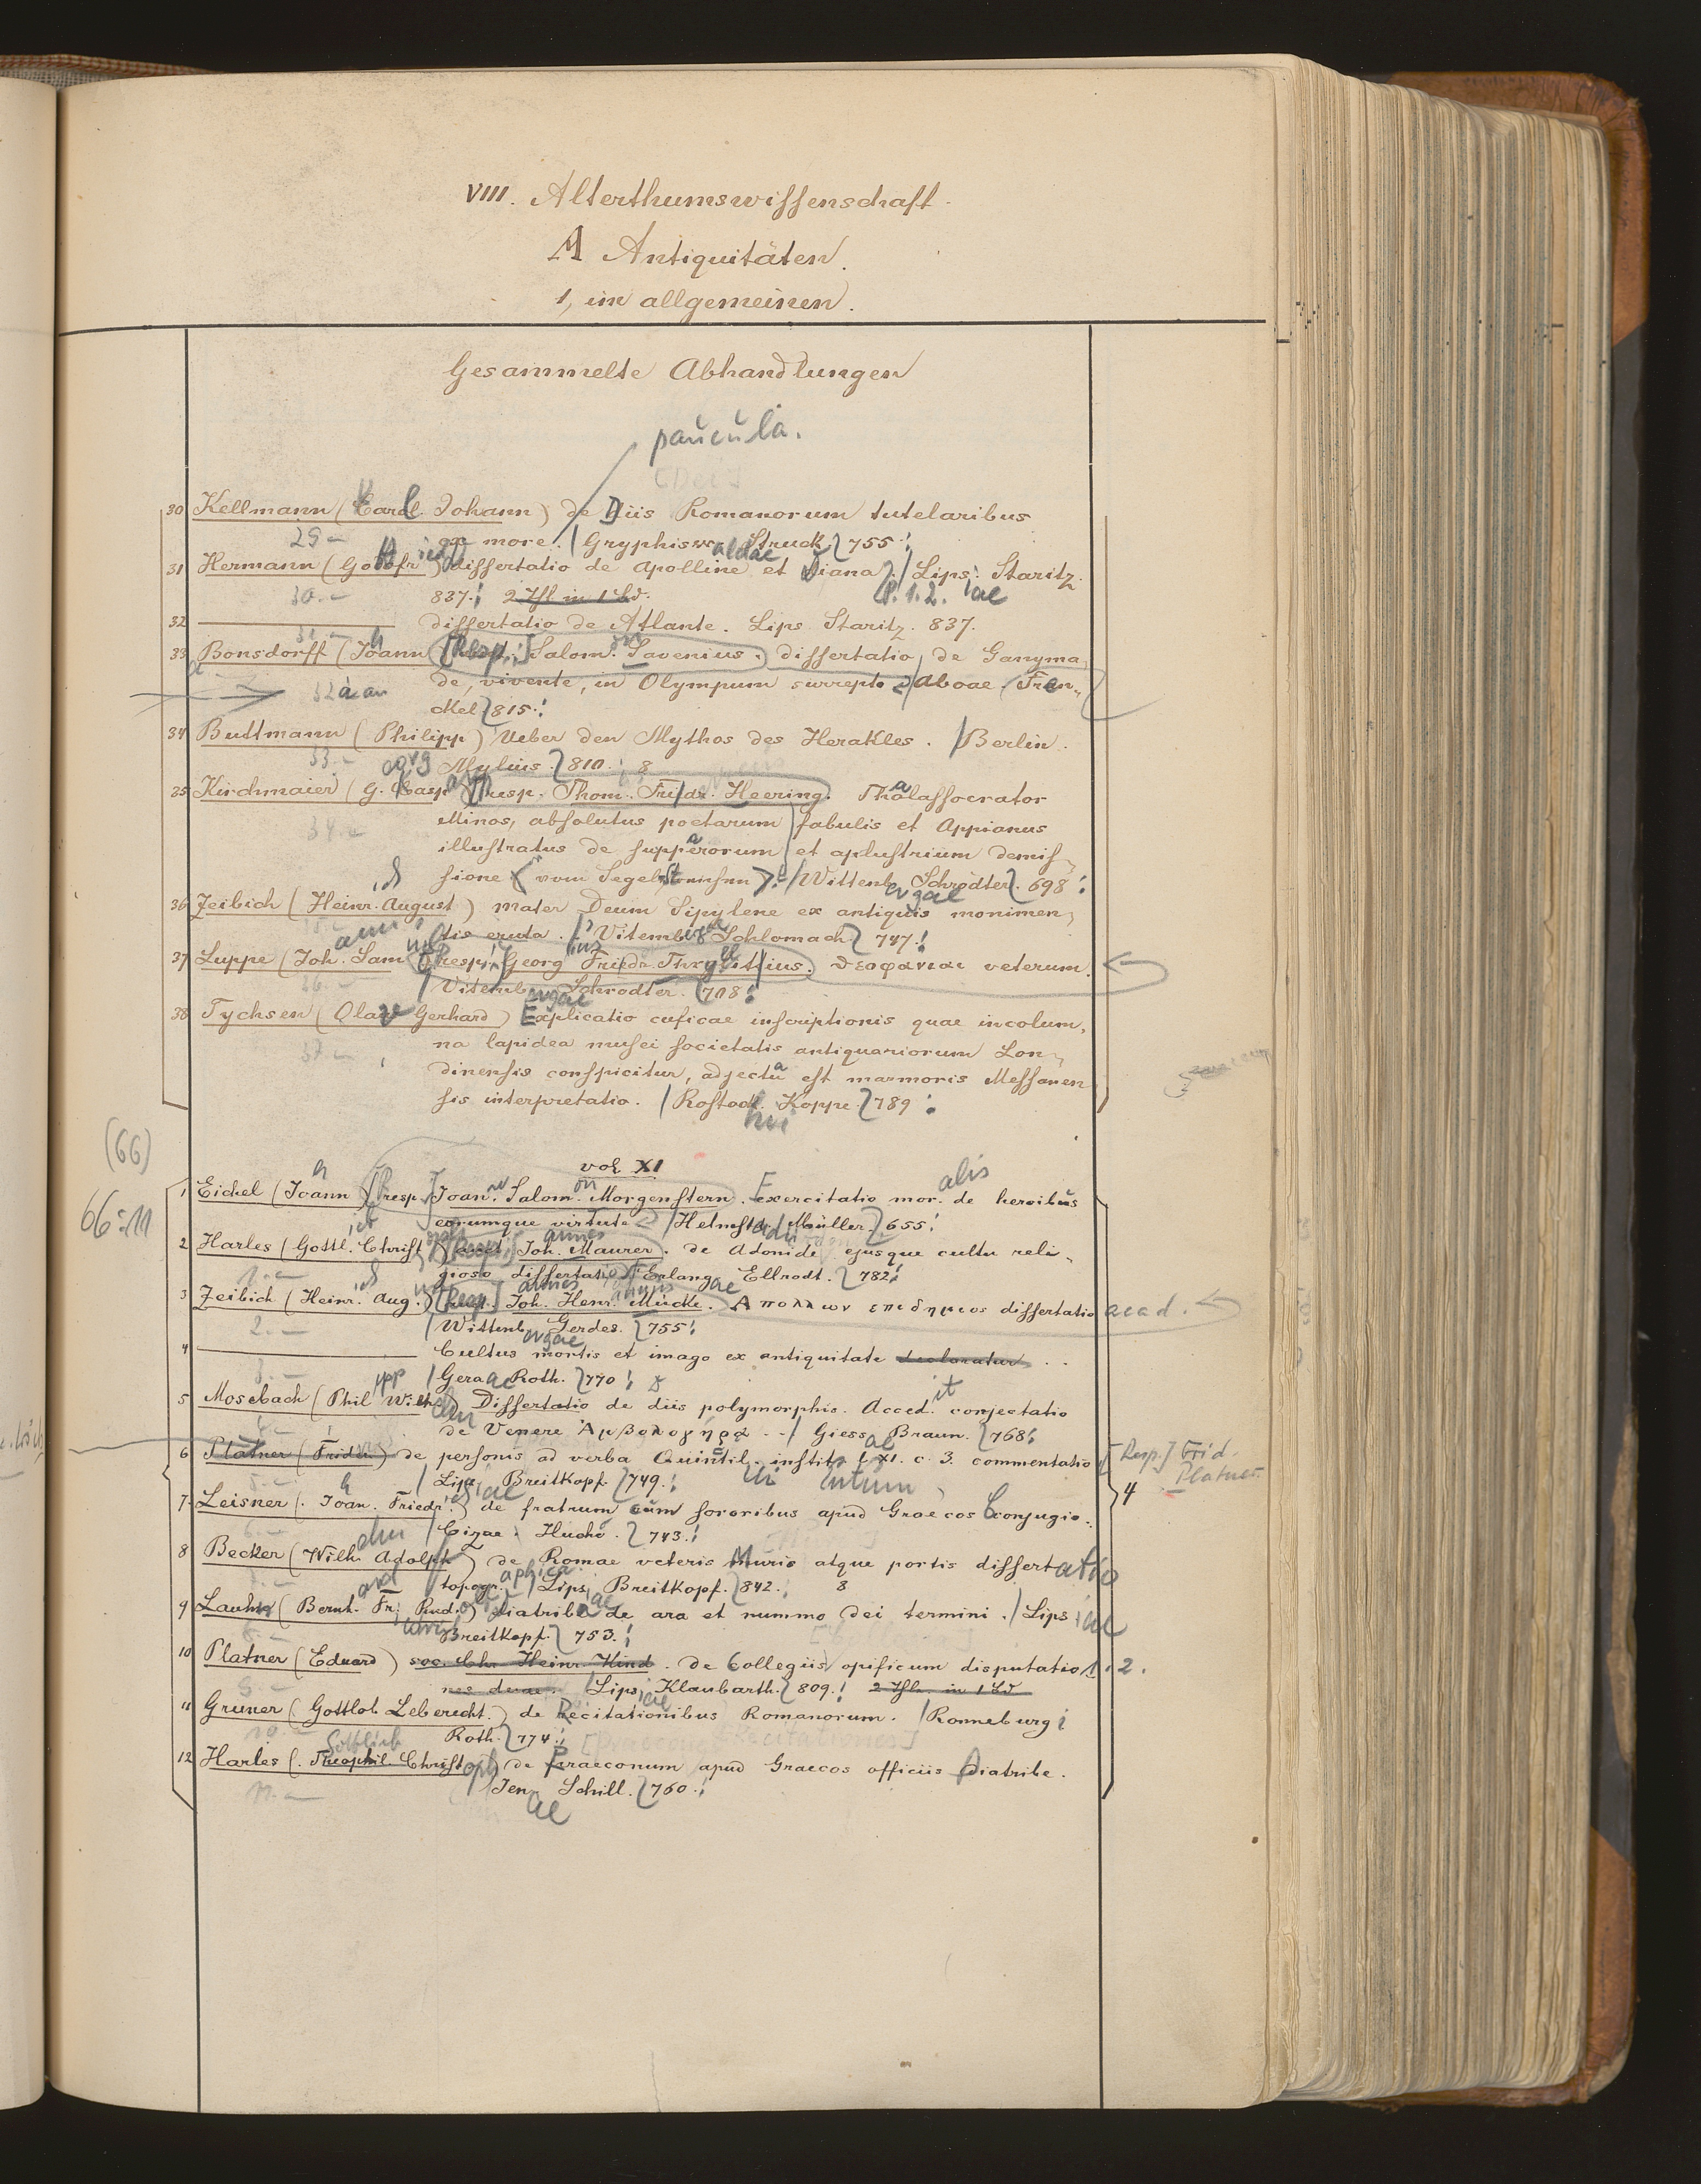 VIII. Alterthumswissenschaft.
A Antiquitäten.
1, im allgemeinen.
Gesammelte Abhandlungen
paucula.
30 Kellmann (Carl Johann) de Diis Romanorum tutelaribus
29 – ex more. / Gryphisw. aldae Struck. 755.
31 Hermann (Gottfried) dissertatio de Apolline et Diana. / Lips. Staritz.
30. – 837. 2 Thl. in 1 Bd. P. 1.2. iae
32 dissertatio de Atlante. Lips. Staritz. 837.
33 Bonsdorff (Joann [Resp.] Salom. Savenius.) dissertatio, de Ganyma
de, vivente, in Olympum surrepto. Aboae. Fren-
ckel 815.
34 Buttmann (Philipp) Ueber den Mythos des Herakles. / Berlin.
33. – Mylius. 810. 8
35 Kirchmaier (G. Casp. resp. Thom. Fridr. Heering. Thalassocrator
34. – Minos, absolutus poetarum fabulis et Appianus
illustratus de supparorum et aplustrium demis-
sione (vom Segelstreichen). / Wittenb. ergae Schrödter. 698.
36 Zeibich (Heinr. August) Mater Deum Sipylene ex antiquis monimen-
tis eruta. / Vitemberg. Schlomach 747.
37 Luppe (Joh. Sam. resp. Georg Fridr. Thryllitius. Θεοφανιαι veterum.
Vitemb. ergae Schrödter. 708.
38 Tychsen (Olav Gerhard) Explicatio cuficae inscriptionis quae in colum-
37. – na lapidea musei societatis antiquariorum Lon-
dinensis conspicitur, adjecta est marmoris Messanen
sis interpretatio. / Rostock. Koppe. 789.
(66)
66:11
vol XI
1 Eichel (Joann [resp.] Joan. Salom. Morgenstern. Exercitatio mor. alis de heroibus
eorumque virtute / Helmstadii Müller. 655.
2 Harles (Gottl. Christ) [Resp.] Joh. Maurer. de Adonide ejusque cultu reli-
1. – gioso dissertatio Erlangae Ellrodt. 782.
3 Zeibich (Heinr. Aug.) [Resp.] Joh. Henr. Mücke. Απολλων επιδημιος dissertatio acad.
2. – / Wittenb. ergae Gerdes. 755.
4 Cultus mortis et imago ex antiquitate declaratur
3. – / Gerae Roth. 770.
5 Mosebach (Phil. Wilh.) Dissertatio de diis polymorphis. Acced. it conjectatio
de Venere Αμβολογηρα / Giessae Braun. 768.
6 Platner (Frider.) de personis ad verba Quintil. instit. l. XI. c. 3. commentatio [Resp.] Frid.
Platner
5. – / Lips. Breitkopf. 749.
7. Leisner (Joan. Friedr.) de fratrum cum sororibus apud Graecos conjugio.
4
6. – / Cizae. Hucho. 743.
8 Becker (Wilh. Adolph) de Romae veteris Muris atque portis dissertatio
topogr. aphica / Lips. Breitkopf. 842. 8
9 Lauhn (Bernh. Fr. Rud.) diatribe de ara et nummo dei termini. / Lips. iae
8. – Breitkopf. 753.
10 Platner (Eduard) soc. Chr. Heinr. Hind. de Collegiis opificum disputatio 1.2.
9. – nes duae. / Lips. iae Klaubarth. 809. 2 Thl. in 1 Bd
11 Gruner (Gottlob Leberecht.) de Recitationibus Romanorum. / Ronneburgi
10. – Roth. 774.
12 Harles (Theophil. Gottlieb Christoph) de Praeconum apud Graecos officiis Diatribe.
11. – / Jenae Schill. 760.